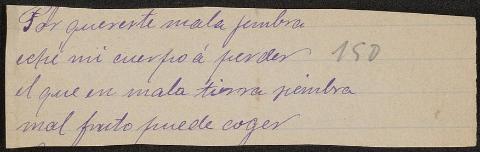 Por quererte mala jembra
eché mi cuerpo á perder 150
el que en mala tierra siembra
mal fruto puede coger